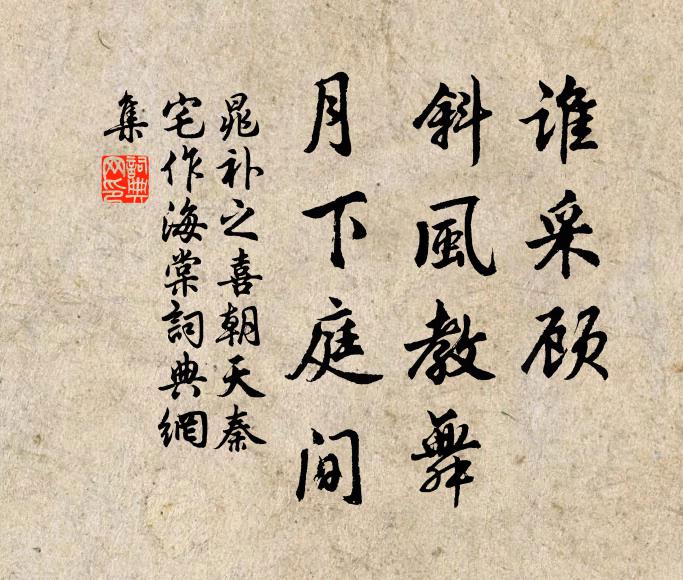 谁采顾
斜風教舞
月下庭间
晁补之喜朝天秦
宅作海棠詞典網
集
詞典
网印